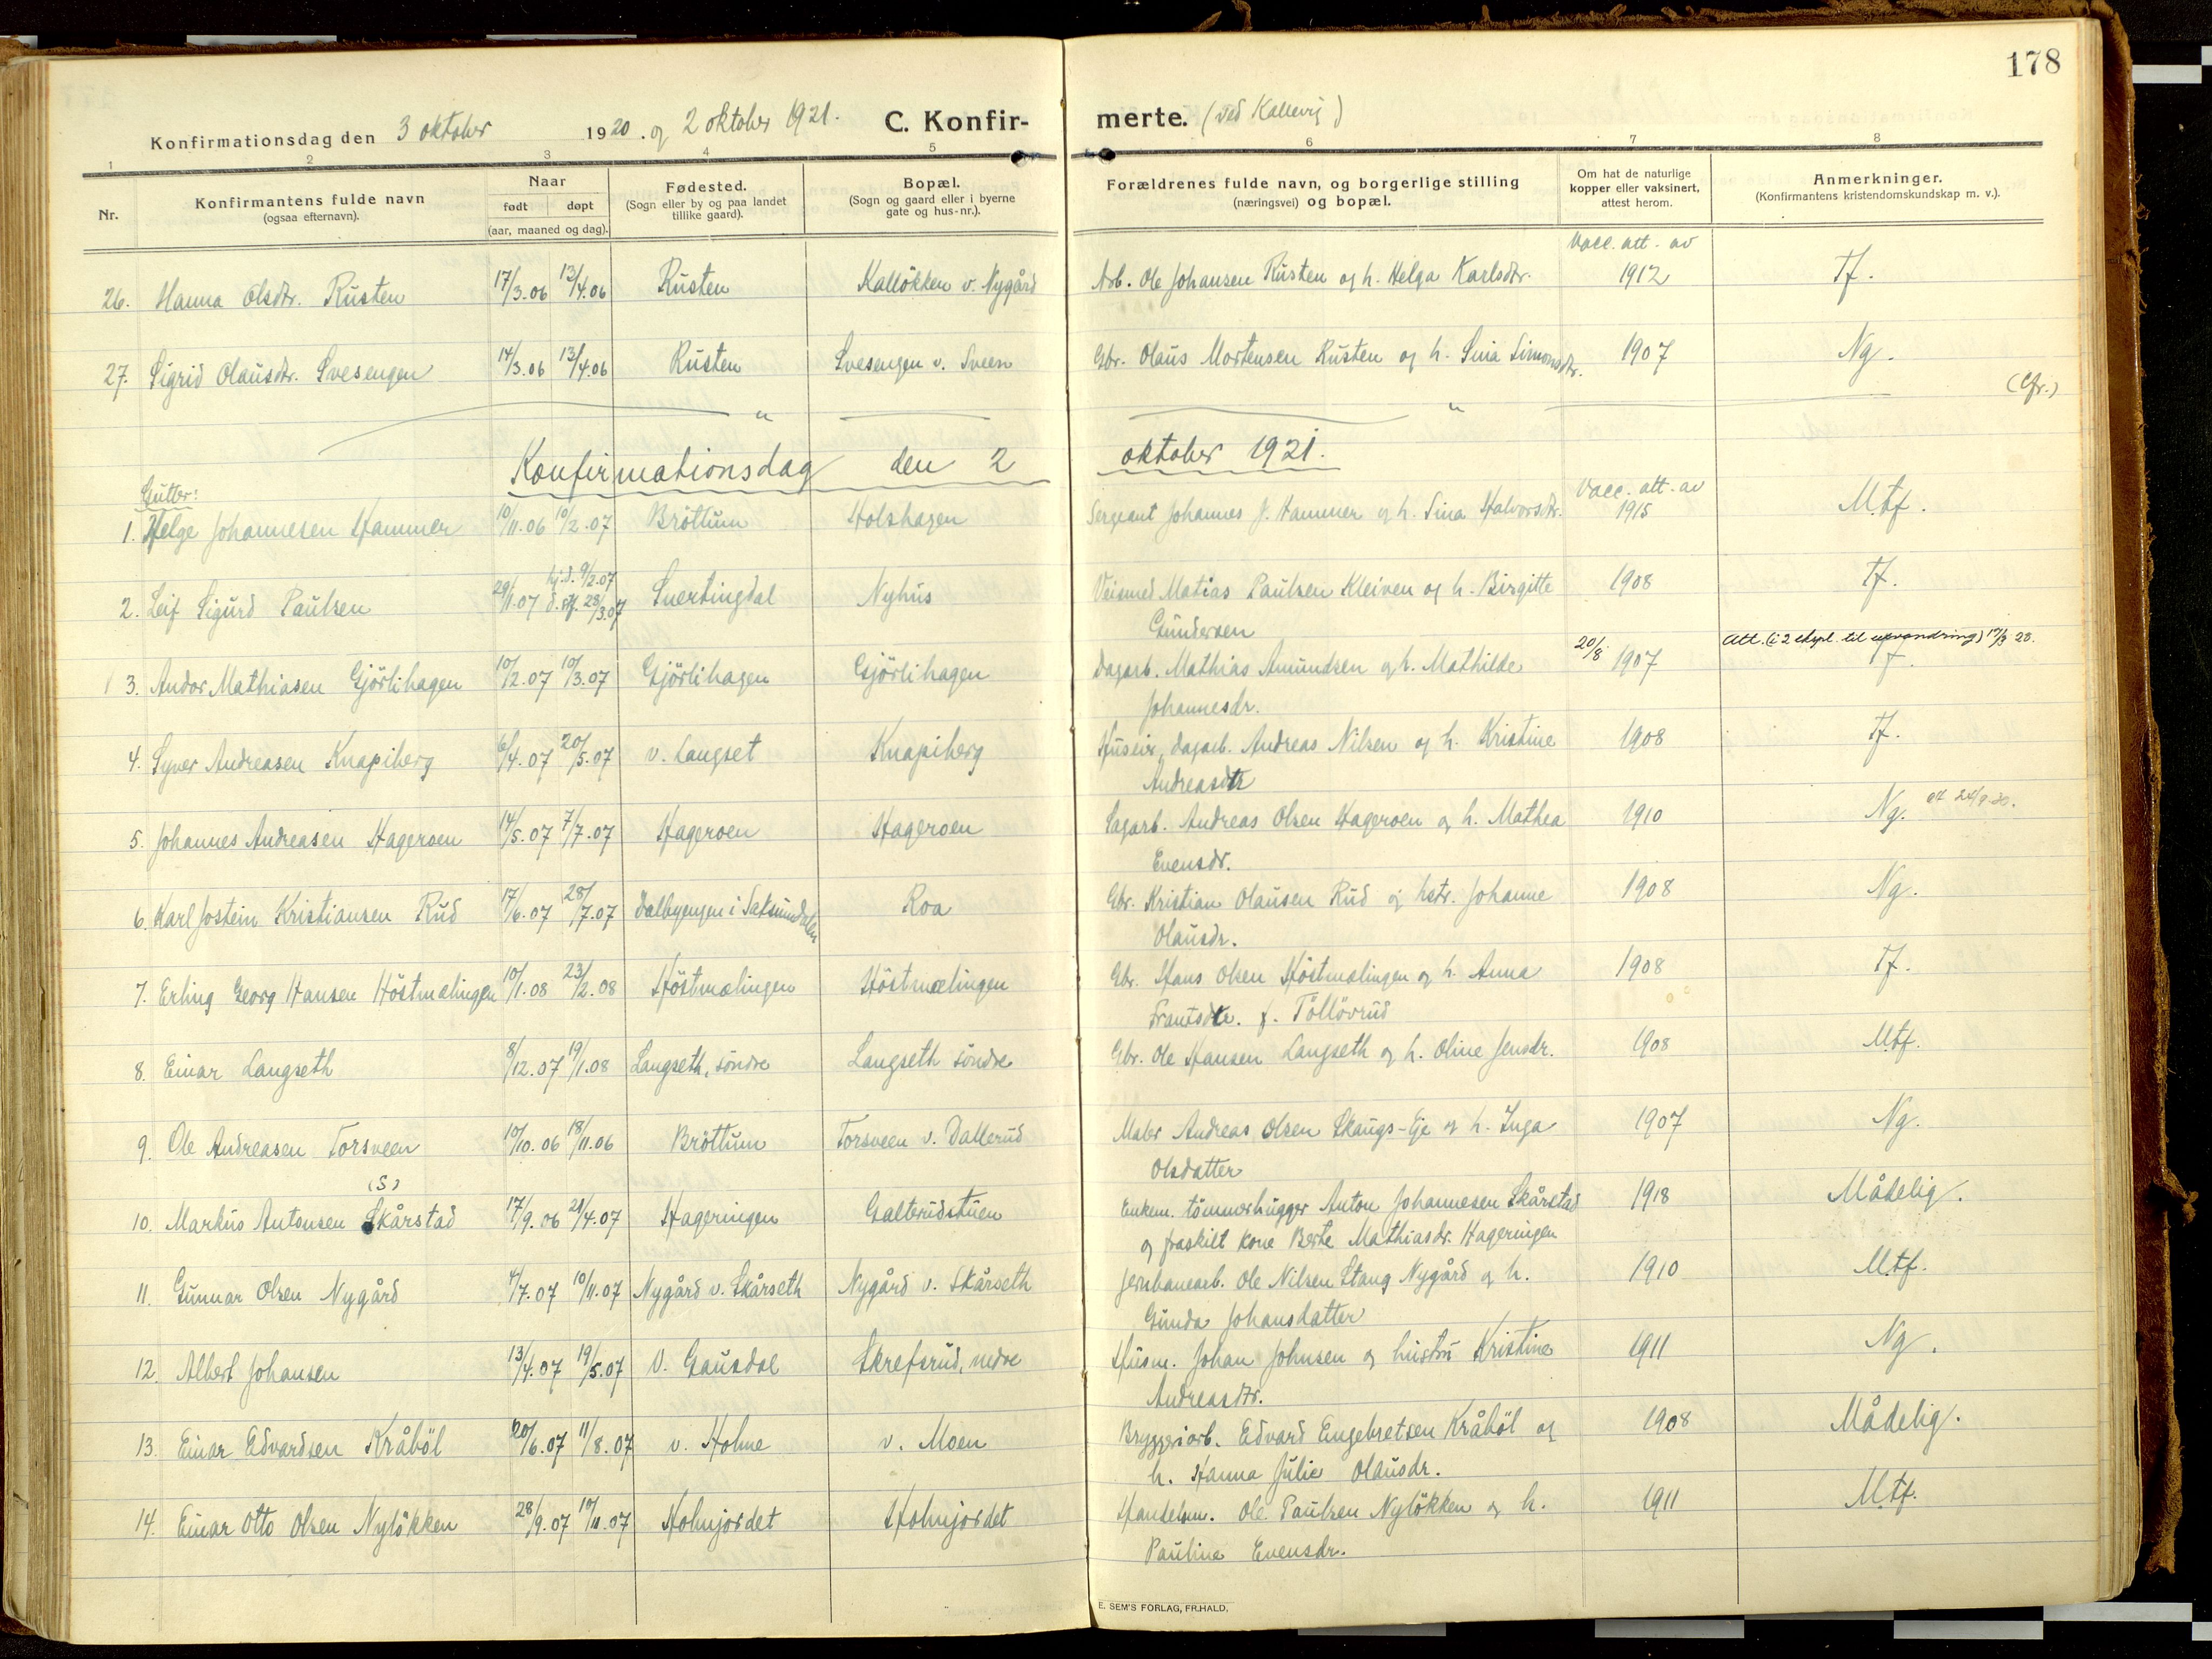 178
Konfirmationsdag den 3 oktober 1920. og 2 oktober 1921. C. Konfirmerte. (ved Kallevig)
1 2 3 4 5 6 7 8
Nr. Konfirmantens fulde navn (ogsaa efternavn). Naar født døpt (aar, maaned og dag). Fødested. (Sogn eller by og paa landet tillike gaard). Bopæl. (Sogn og gaard eller i byerne gate og hus-nr.). Forældrenes fulde navn, og borgerlige stilling (næringsvei) og bopæl. Om hat de naturlige kopper eller vaksinert, attest herom. Anmerkninger. (Konfirmantens kristendomskundskap m. v.).
Vacc. att. av
26. Hanna Olsdtr. Rusten 17/3.06 13/4.06 Rusten Kalløkken v. Nygård Arb. Ole Johansen Rusten og h. Helga Karlsdtr. 1912 Tf.
27. Sigrid Olausdtr. Svesengen 14/3.06 13/4.06 Rusten Svesengen v. Sveen Gbr. Olaus Mortensen Rusten og h. Sina Simonsdtr. 1907 Ng.
(Gfr.)
Konfirmationsdag den 2 oktober 1921.
Gutter: Vacc. att. av
1. Helge Johannesen Hammer 10/11.06 10/2.07 Bröttum Holshagen Sergeant Johannes J. Hammer og h. Sina Halvorsdtr. 1915 Mtf.
2. Leif Sigurd Paulsen 29/1.07 hj.d. 9/2.07 d. stf. 28/3.07 Snertingdal Nyhus Veiomed Matias Paulsen Kleiven og h. Birgitte 1908 Tf.
Gundersen
Att. (i 2 expl. til utvandring) 17/3 28.
3. Andor Mathiasen Gjörlihagen 10/2.07 10/3.07 Gjörlihagen Gjörlihagen Dagarb. Mathias Amundsen og h. Mathilde 20/8 1907 Tf.
Johannesdr.
4. Syver Andreasen Knapiberg 6/4.07 20/5.07 v. Langset Knapiberg Huseier, dagarb. Andreas Nilsen og h. Kristine 1908 Tf.
Andreasdtr
5. Johannes Andreasen Hageroen 14/5.07 7/7.07 Hageroen Hageroen Sagarb. Andreas Olsen Hageroen og h. Mathea 1910 Ng. att 24/9-30.
Evensdr.
6. Karl Jostein Kristiansen Rud 17/6.07 28/7.07 Dalbyengen i Saksumdalen Roa Gbr. Kristian Olausen Rud og hstr. Johanne 1908 Ng.
Olausdr.
7. Erling Georg Hansen Höstmælingen 10/1.08 23/2.08 Höstmælingen Höstmælingen Gbr. Hans Olsen Höstmælingen og h. Anna 1908 Tf.
Frantsdtr. f. Töllövrud
8. Einar Langseth 8/12.07 19/1.08 Langseth, söndre Langseth söndre Gbr. Ole Hansen Langseth og h. Oline Jensdr. 1908 Mtf.
9. Ole Andreasen Torsveen 10/10.06 18/11.06 Bröttum Torsveen v. Dallerud Maler Andreas Olsen Skaugs-Eje og h. Inga 1907 Ng.
Olsdatter
(S)
10. Markus Antonsen Skårstad 17/9.06 21/4.07 Hageringen Galterudstuen Enkem. tömmerhugger Anton Johannesen Skårstad 1918 Mådelig.
og fraskilt kone Berte Mathiasdr. Hageringen
11. Gunnar Olsen Nygård 4/7.07 10/11.07 Nygård v. Skårseth Nygård v. Skårseth Jernbanearb. Ole Nilsen Stang Nygård og h. 1910 Mtf.
Gunda Johansdatter
12. Albert Johansen 13/4.07 19/5.07 V. Gausdal Skrefsrud, nedre Husm. Johan Johnsen og hustru Kristine 1911 Ng.
Andreasdtr.
13. Einar Edvardsen Kråböl 20/6.07 11/8.07 v. Holme v. Moen Bryggeriarb. Edvard Engebretsen Kråböl og 1908 Mådelig.
h. Hanna Julie Olausdr.
14. Einar Otto Olsen Nylökken 28/9.07 10/11.07 Holmjordet Holmjordet Handelsm. Ole Paulsen Nylökken og h. 1911 Mtf.
Pauline Evensdr.
E. SEM'S FORLAG, FR.HALD.